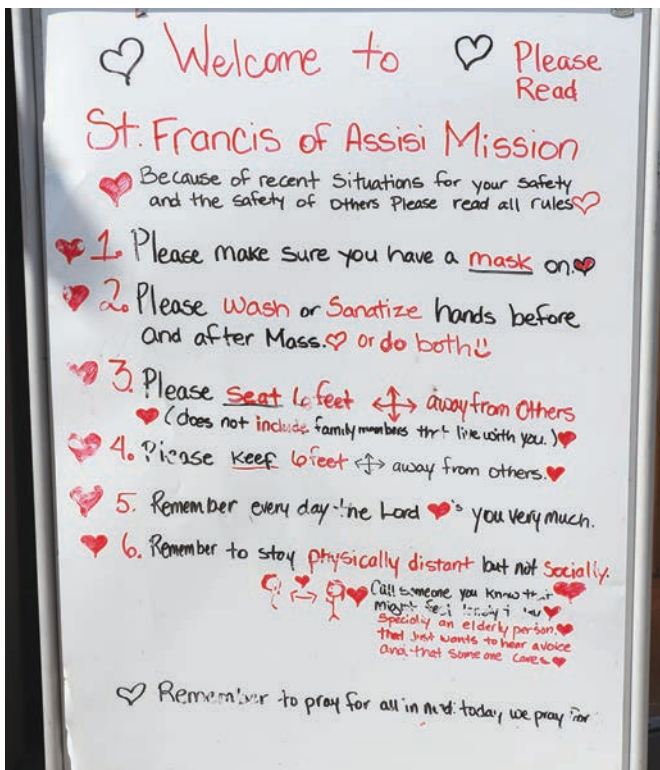 Welcome to
Please
Read
St. Francis of Assisi Mission
Because of recent Situations for your Safety
and the safety of Others Please read all rules
1. Please make sure you have a mask on.
2. Please Wash or Sanatize hands before
and after Mass. or do both
3. Please Seat 6 feet away from Others
(does not include family members that live with you.)
4. Please Keep 6 feet away from others.
5. Remember every day the Lord 's you very much.
6. Remember to stay physically distant but not Socially.
Call someone you know that
might feel lonely
Specially an elderly person.
that just wants to hear a voice
and that someone cares
Remember to pray for all in need: today, we pray for